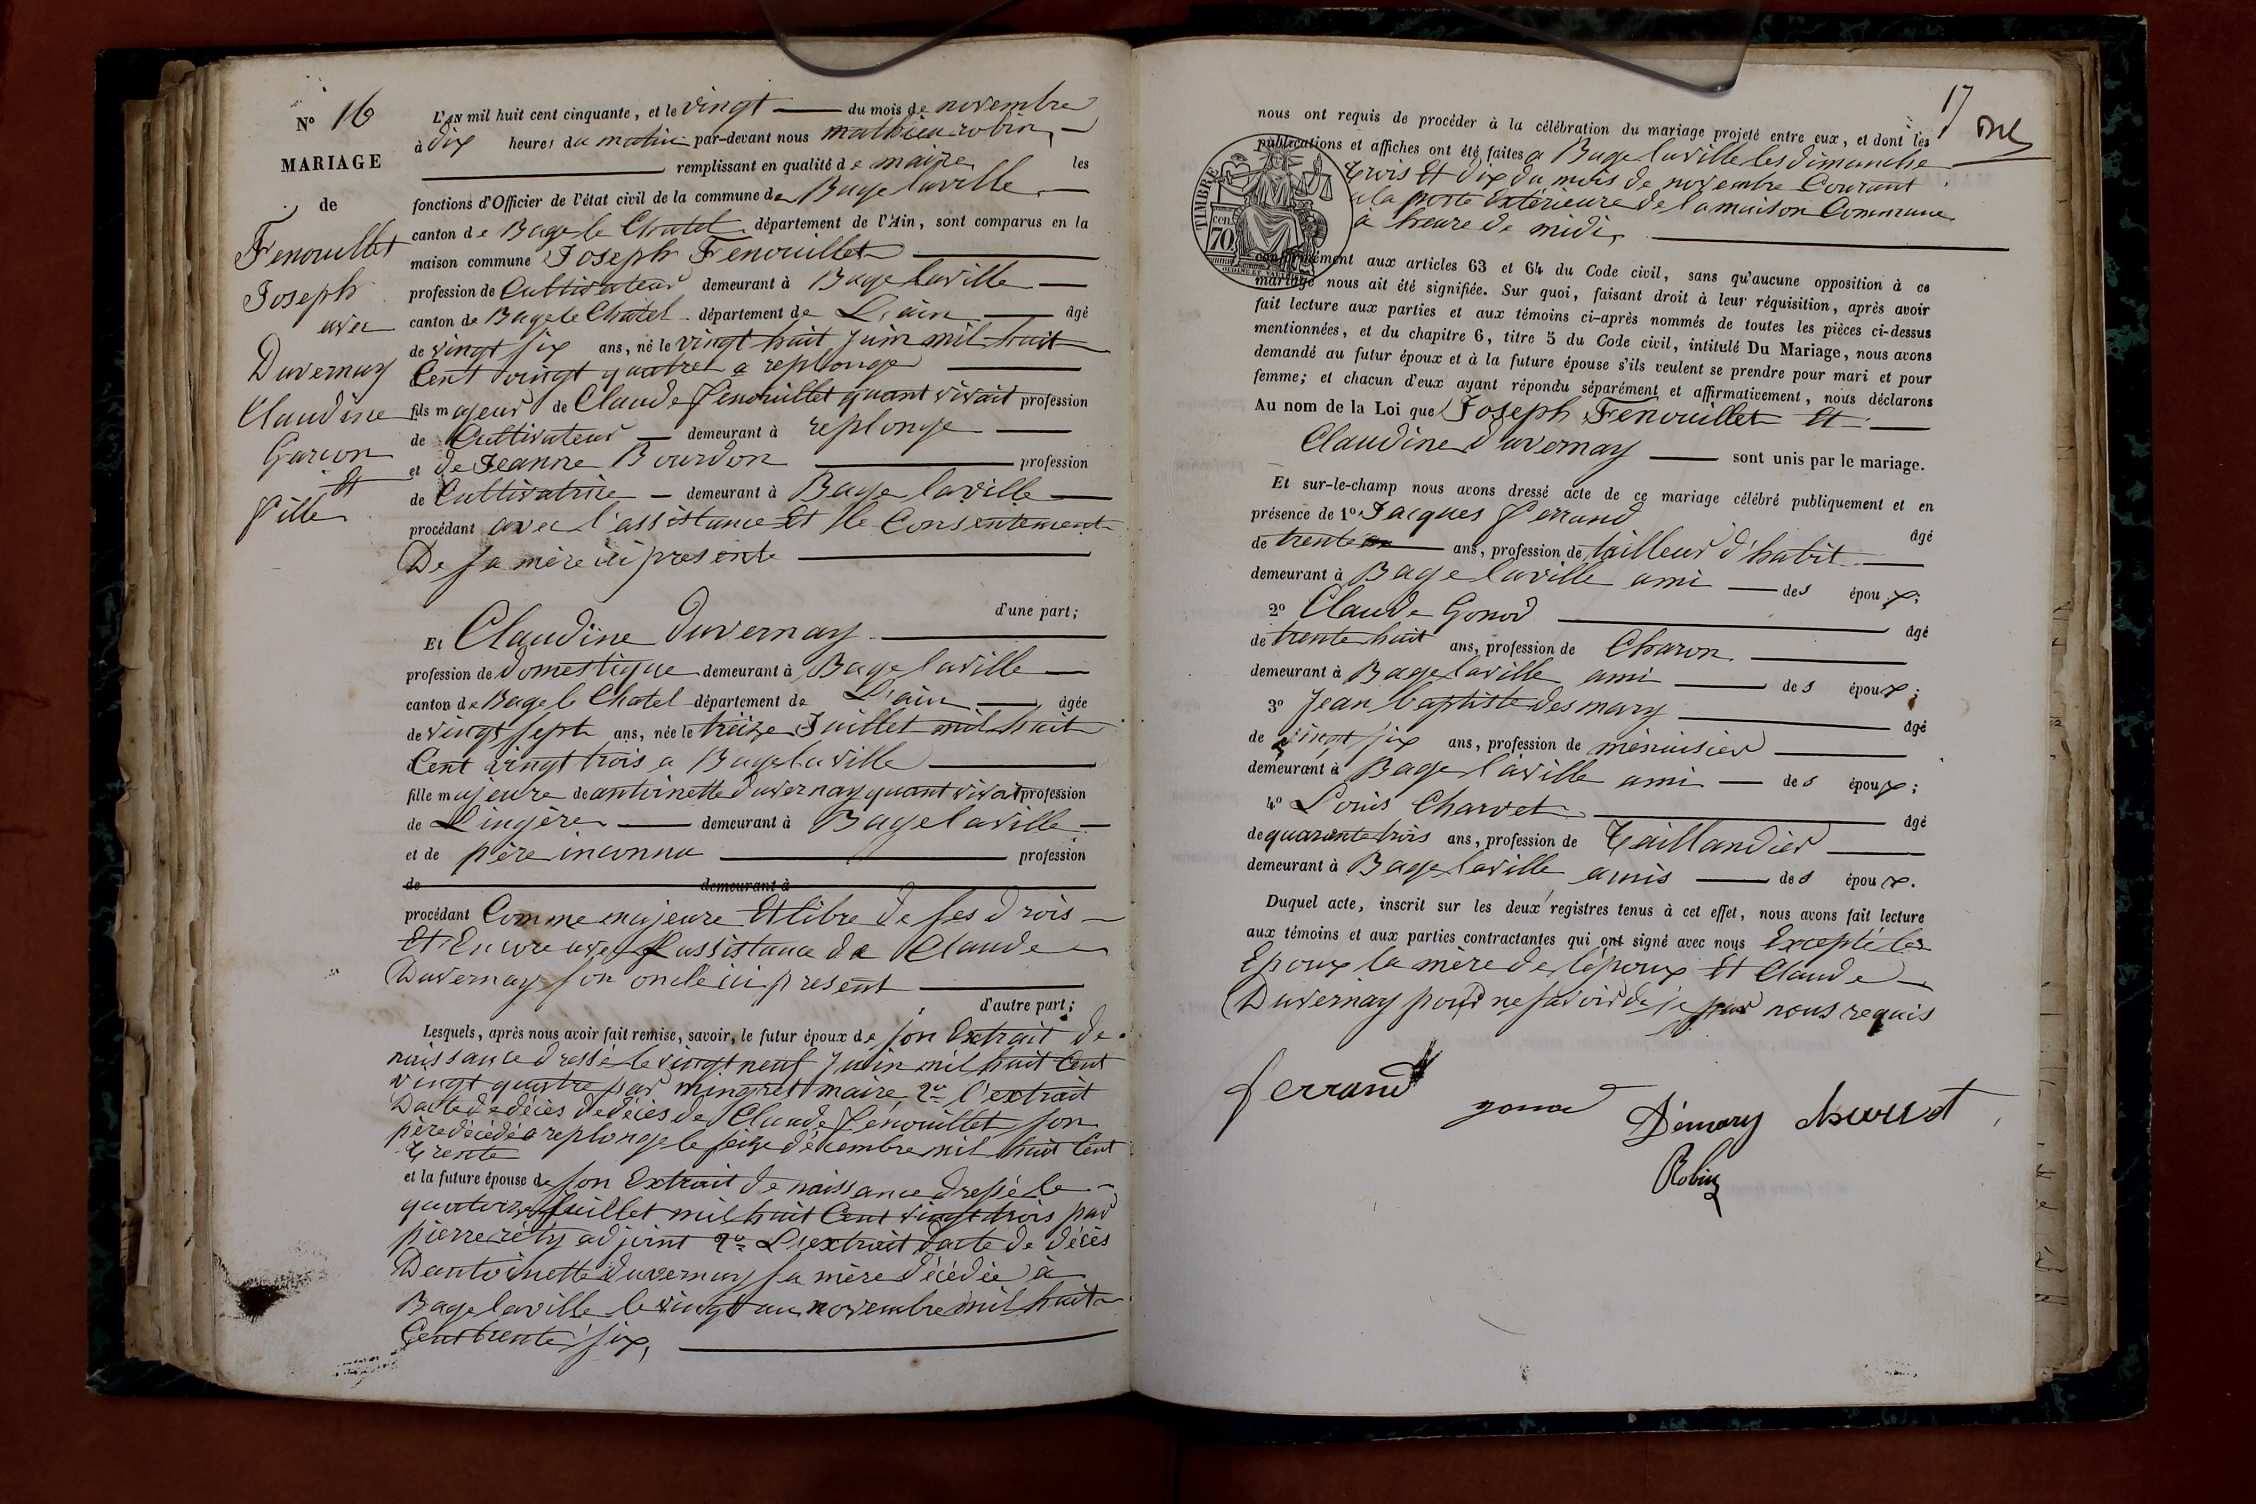 No 16
MARIAGE
de
Fenouillet
Joseph
avec
Duvernay
Claudine
Garcon
et
fille
L'AN mil huit cent cinquante, et le vingt du mois de novembre
à dix heures du matin par-devant nous mathieu robin,
remplissant en qualité de maire les
fonctions d'Officier de l'état civil de la commune de Bage laville
canton de Bage le Chatel département de l'Ain, sont comparus en la
maison commune Joseph Fenouillet
profession de Cultivateur demeurant à Bage laville
canton de Bage le Chatel département de L'ain âgé
de vingt six ans, né le vingt huit juin mil huit
Cent vingt quatre a replonge
fils majeur de Claude fenouillet quant vivait profession
de Cultivateur demeurant à replonge
et de Jeanne Bourdon profession
de Cultivatrice demeurant à Bage laville
procédant avec l'assistance Et le Consentement
De sa mère ici presente
d'une part;
Et Claudine Duvernay
profession de domestique demeurant à Bage laville
canton de Bage le Chatel département de L'ain âgée
de vingt sept ans, née le treize Juillet mil huit
Cent vingt trois a Bage laville
fille majeure de antoinette duvernay quant vivait profession
de Lingère demeurant à Bage laville
et de père inconnu profession
de demeurant à
procédant Comme majeure Et libre de ses drois
Et Encore avec l'assistance de Claude
Duvernay son oncle ici present
d'autre part;
Lesquels, après nous avoir fait remise, savoir, le futur époux de son Extrait de
naissance dressé le vingt neuf Juin mil huit Cent
vingt quatre par mingret maire 2o l'extrait
Dacte de décès de décès de Claude Fénouillet son
père décédé a replonge le seize décembre mil huit Cent
trente
et la future épouse de son Extrait de naissance dressé le
quatorze Juillet mil huit Cent vingt trois par
pierre réty adjoint 2o L'extrait dacte de décès
Dantoinette duvernay sa mère décédée à
Bage laville le vingt un novembre mil huit
Cent trente six,
17
nous ont requis de procéder à la célébration du mariage projeté entre eux, et dont les
publications et affiches ont été faites a Bage laville les dimanche
trois Et dix du mois de novembre Courant
a la porte Extérieure de la maison Commune
à heure de midi,
TIMBRE
cen. 70
conformément aux articles 63 et 64 du Code civil, sans qu'aucune opposition à ce
mariage nous ait été signifiée. Sur quoi, faisant droit à leur réquisition, après avoir
fait lecture aux parties et aux témoins ci-après nommés de toutes les pièces ci-dessus
mentionnées, et du chapitre 6, titre 5 du Code civil, intitulé Du Mariage, nous avons
demandé au futur époux et à la future épouse s'ils veulent se prendre pour mari et pour
femme; et chacun d'eux ayant répondu séparément et affirmativement, nous déclarons
Au nom de la Loi que Joseph Fenouillet Et
Claudine duvernay sont unis par le mariage.
Et sur-le-champ nous avons dressé acte de ce mariage célébré publiquement et en
présence de 1o Jacques ferrand âgé
de trente ans, profession de tailleur d'habit
demeurant à Bage laville ami des époux;
2o Claude Gonod âgé
de trente huit ans, profession de Charon
demeurant à Bage laville ami des époux;
3o Jean baptiste desmary âgé
de vingt six ans, profession de menuisier
demeurant à Bage laville ami des époux;
4o Louis Charvet âgé
de quarante trois ans, profession de Taillandier
demeurant à Bage laville amis des époux.
Duquel acte, inscrit sur les deux registres tenus à cet effet, nous avons fait lecture
aux témoins et aux parties contractantes qui ont signé avec nous Excepté les
Epoux la mère de l'époux Et Claude
Duvernay pour ne savoir de ce par nous requis
ferrand
gonod
Démary
charvet
Robin